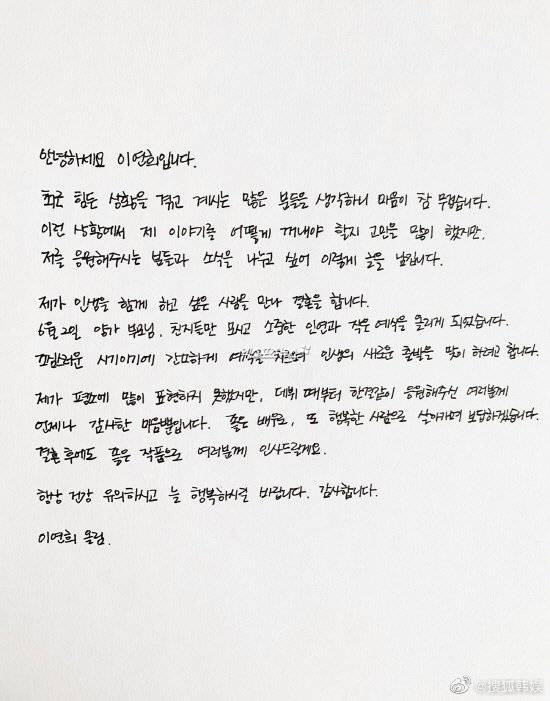 안녕하세요 이연희입니다.
최근 힘든 상황을 겪고 계시는 많은 분들을 생각하니 마음이 참 무겁습니다.
이런 상황에서 제 이야기를 어떻게 꺼내야 할지 고민을 많이 했지만,
저를 응원해주시는 분들과 소식을 나누고 싶어 이렇게 글을 남깁니다.
제가 인생을 함께 하고 싶은 사람을 만나 결혼을 합니다.
6월 2일 양가 부모님, 친지들만 모시고 소중한 인연과 작은 예식을 올리게 되었습니다.
조심스러운 시기이기에 간소하게 예식을 치르며 인생의 새로운 출발을 맞이 하려고 합니다.
제가 평소에 많이 표현하지 못했지만, 데뷔 때부터 한결같이 응원해주신 여러분께
언제나 감사한 마음뿐입니다. 좋은 배우로, 또 행복한 사람으로 살아가며 보답하겠습니다.
결혼 후에도 좋은 작품으로 여러분께 인사드릴게요.
항상 건강 유의하시고 늘 행복하시길 바랍니다. 감사합니다.
이연희 올림.
@搜狐韩娱